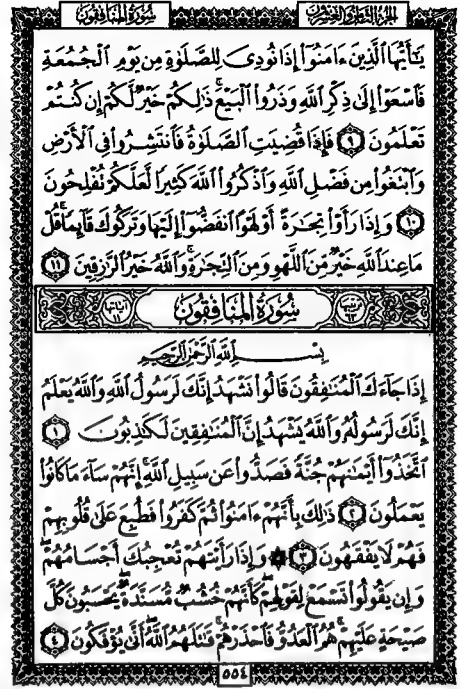 الجزء الثامن والعشرون
سورة المنافقون
يَٰٓأَيُّهَا ٱلَّذِينَ ءَامَنُوٓا۟ إِذَا نُودِىَ لِلصَّلَوٰةِ مِن يَوْمِ ٱلْجُمُعَةِ
فَٱسْعَوْا۟ إِلَىٰ ذِكْرِ ٱللَّهِ وَذَرُوا۟ ٱلْبَيْعَ ۚ ذَٰلِكُمْ خَيْرٌ لَّكُمْ إِن كُنتُمْ
تَعْلَمُونَ ٩ فَإِذَا قُضِيَتِ ٱلصَّلَوٰةُ فَٱنتَشِرُوا۟ فِى ٱلْأَرْضِ
وَٱبْتَغُوا۟ مِن فَضْلِ ٱللَّهِ وَٱذْكُرُوا۟ ٱللَّهَ كَثِيرًا لَّعَلَّكُمْ تُفْلِحُونَ
١٠ وَإِذَا رَأَوْا۟ تِجَٰرَةً أَوْ لَهْوًا ٱنفَضُّوٓا۟ إِلَيْهَا وَتَرَكُوكَ قَآئِمًا ۚ قُلْ
مَا عِندَ ٱللَّهِ خَيْرٌ مِّنَ ٱللَّهْوِ وَمِنَ ٱلتِّجَٰرَةِ ۚ وَٱللَّهُ خَيْرُ ٱلرَّٰزِقِينَ ١١
ترتيبها ٦٣ سورة المنافقون آياتها ١١
بِسْمِ ٱللَّهِ ٱلرَّحْمَٰنِ ٱلرَّحِيمِ
إِذَا جَآءَكَ ٱلْمُنَٰفِقُونَ قَالُوا۟ نَشْهَدُ إِنَّكَ لَرَسُولُ ٱللَّهِ وَٱللَّهُ يَعْلَمُ
إِنَّكَ لَرَسُولُهُۥ وَٱللَّهُ يَشْهَدُ إِنَّ ٱلْمُنَٰفِقِينَ لَكَٰذِبُونَ ١
ٱتَّخَذُوٓا۟ أَيْمَٰنَهُمْ جُنَّةً فَصَدُّوا۟ عَن سَبِيلِ ٱللَّهِ ۚ إِنَّهُمْ سَآءَ مَا كَانُوا۟
يَعْمَلُونَ ٢ ذَٰلِكَ بِأَنَّهُمْ ءَامَنُوا۟ ثُمَّ كَفَرُوا۟ فَطُبِعَ عَلَىٰ قُلُوبِهِمْ
فَهُمْ لَا يَفْقَهُونَ ٣ ۞ وَإِذَا رَأَيْتَهُمْ تُعْجِبُكَ أَجْسَامُهُمْ ۖ
وَإِن يَقُولُوا۟ تَسْمَعْ لِقَوْلِهِمْ ۖ كَأَنَّهُمْ خُشُبٌ مُّسَنَّدَةٌ ۖ يَحْسَبُونَ كُلَّ
صَيْحَةٍ عَلَيْهِمْ ۚ هُمُ ٱلْعَدُوُّ فَٱحْذَرْهُمْ ۚ قَٰتَلَهُمُ ٱللَّهُ ۖ أَنَّىٰ يُؤْفَكُونَ ٤
٥٥٤